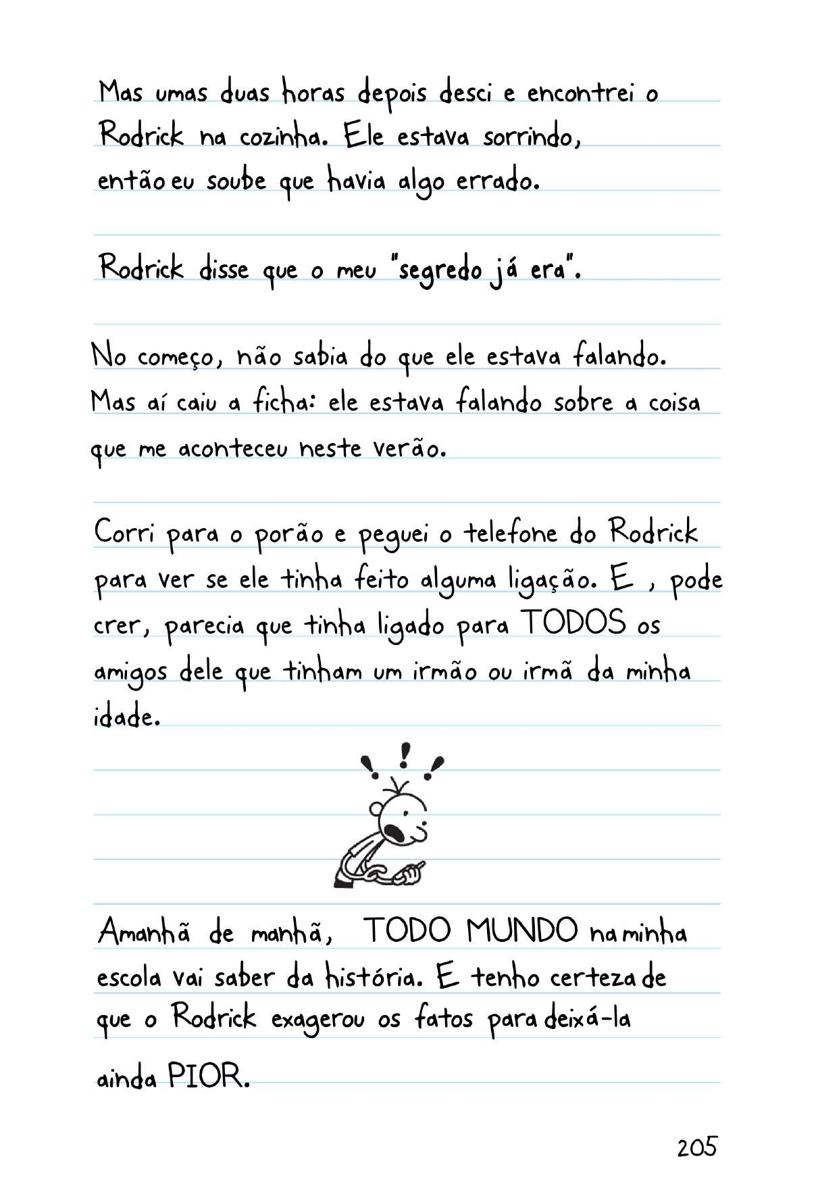 Mas umas duas horas depois desci e encontrei o
Rodrick na cozinha. Ele estava sorrindo,
então eu soube que havia algo errado.
Rodrick disse que o meu "segredo já era".
No começo, não sabia do que ele estava falando.
Mas aí caiu a ficha: ele estava falando sobre a coisa
que me aconteceu neste verão.
Corri para o porão e peguei o telefone do Rodrick
para ver se ele tinha feito alguma ligação. E , pode
crer, parecia que tinha ligado para TODOS os
amigos dele que tinham um irmão ou irmã da minha
idade.
! ! !
Amanhã de manhã, TODO MUNDO na minha
escola vai saber da história. E tenho certeza de
que o Rodrick exagerou os fatos para deixá-la
ainda PIOR.
205